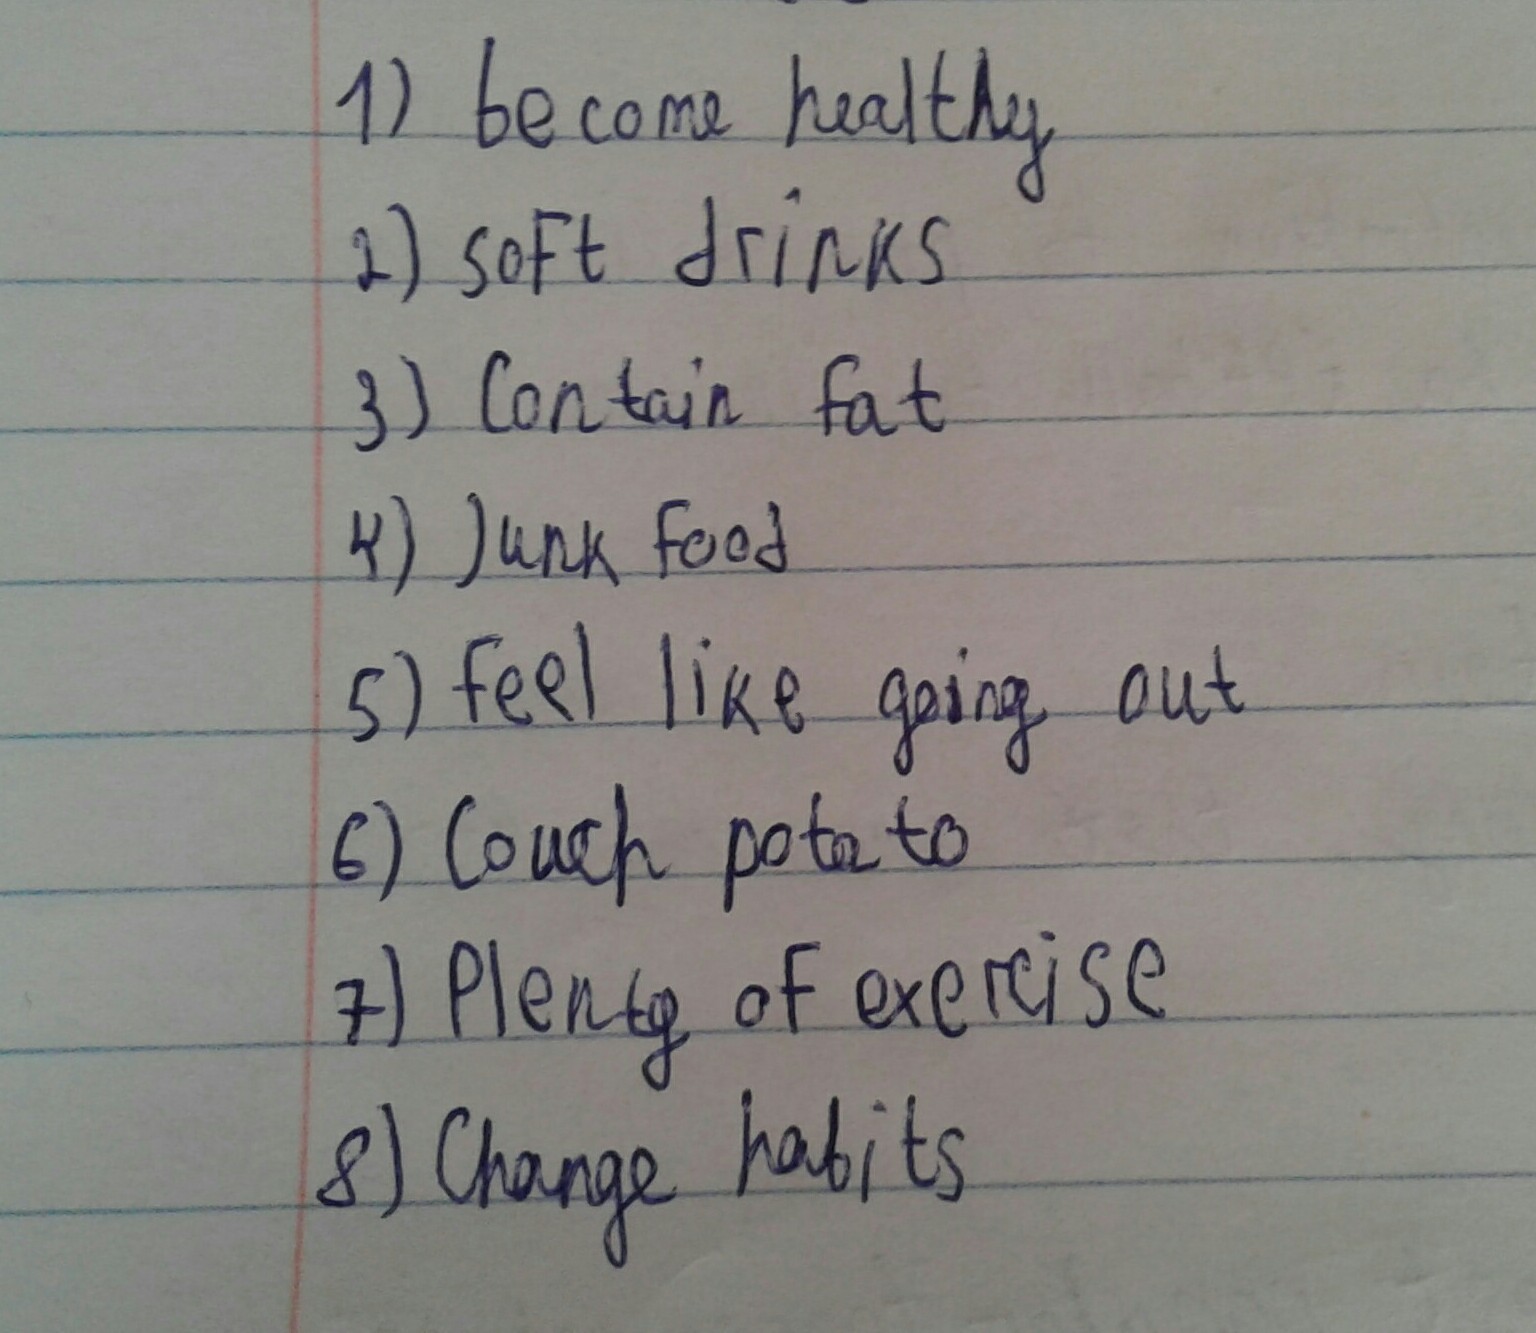 1) become healthy
2) soft drinks
3) Contain fat
4) Junk food
5) feel like going out
6) Couch potato
7) Plenty of exercise
8) Change habits